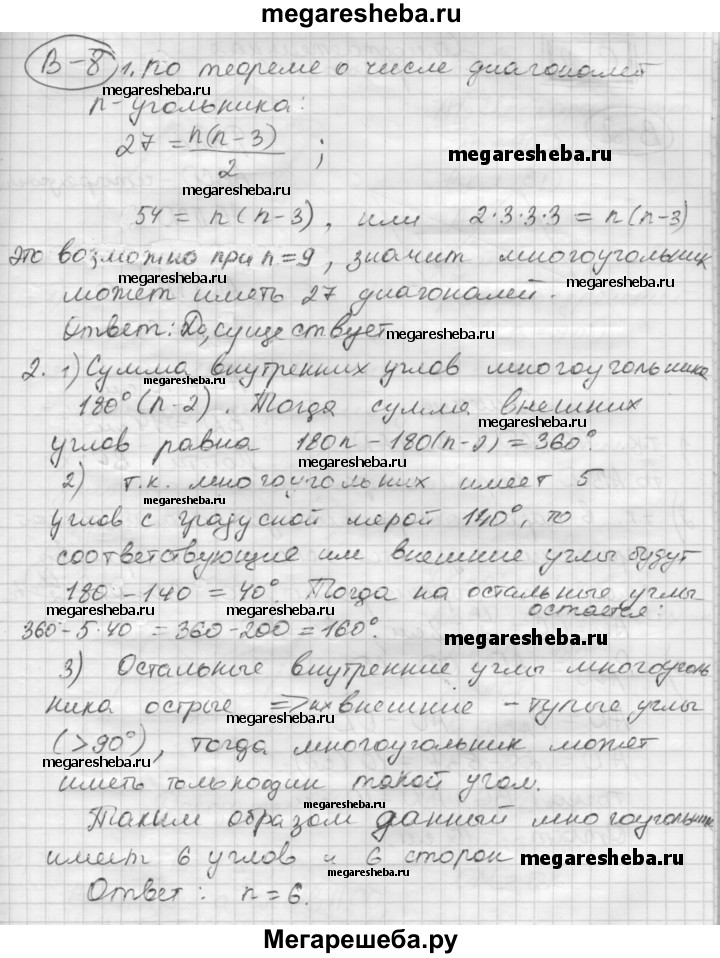 megaresheba.ru
В-8 1. По теореме о числе диагоналей
n-угольника:
27 = n(n-3)/2 ;
megaresheba.ru
megaresheba.ru
megaresheba.ru
54 = n(n-3), или 2·3·3·3 = n(n-3)
megaresheba.ru
это возможно при n=9, значит многоугольник
megaresheba.ru
может иметь 27 диагоналей.
Ответ: Да, существует
megaresheba.ru
2. 1) Сумма внутренних углов многоугольника
megaresheba.ru
180°(n-2). Тогда сумма внешних
megaresheba.ru
углов равна 180n - 180(n-2) = 360°.
2) т.к. многоугольник имеет 5
megaresheba.ru
углов с градусной мерой 140°, то
соответствующие им внешние углы будут
180 - 140 = 40°. Тогда на остальные углы
остается:
megaresheba.ru
megaresheba.ru
360 - 5·40 = 360 - 200 = 160°.
megaresheba.ru
3) Остальные внутренние углы многоуголь
ника острые => их внешние - тупые углы
megaresheba.ru
(>90°), тогда многоугольник может
megaresheba.ru
иметь только один такой угол.
megaresheba.ru
Таким образом данный многоугольник
имеет 6 углов и 6 сторон
megaresheba.ru
megaresheba.ru
Ответ: n = 6.
Мегарешеба.ру